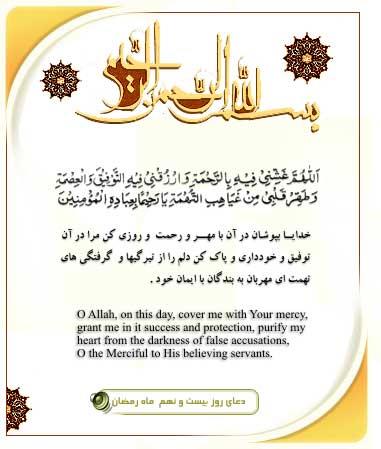 بسم الله الرحمن الرحیم
اَللّهُمَّ غَشِّنی فیهِ بِالرَّحْمَةِ وَارْزُقْنی فیهِ التَّوْفیقَ وَالْعِصْمَةَ
وَطَهِّرْ قَلْبی مِنْ غَیاهِبِ التُّهْمَةِ یا رَحیماً بِعِبادِهِ الْمُؤْمِنینَ
خدایا بپوشان در آن با مهر و رحمت و روزی کن مرا در آن
توفیق و خودداری و پاک کن دلم را از تیرگیها و گرفتگی های
تهمت ای مهربان به بندگان با ایمان خود .
O Allah, on this day, cover me with Your mercy,
grant me in it success and protection, purify my
heart from the darkness of false accusations,
O the Merciful to His believing servants.
دعای روز بیست و نهم ماه رمضان